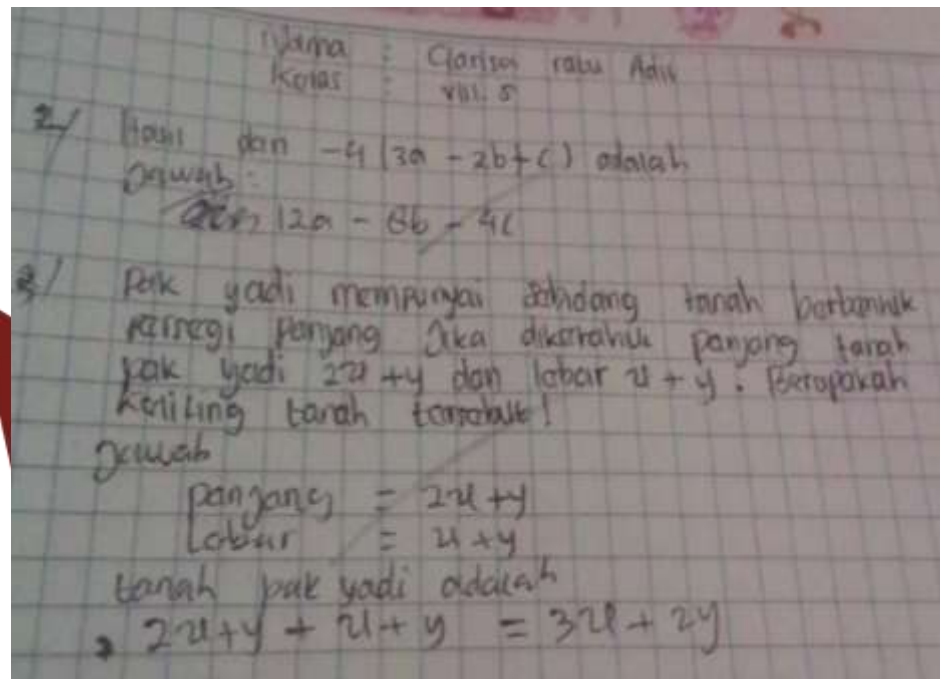 Nama : Clarisa ratu Adis
Kelas : VIII. 5
2/ Hasil dari -4 (3a - 2b + c) adalah
Jawab :
12a - 8b - 4c
3/ Pak yadi mempunyai sebidang tanah berbentuk
persegi panjang Jika diketahui panjang tanah
pak yadi 2x + y dan lebar x + y. Berapakah
keliling tanah tersebut!
Jawab
panjang = 2x + y
Lebar = x + y
tanah pak yadi adalah
2x + y + x + y = 3x + 2y